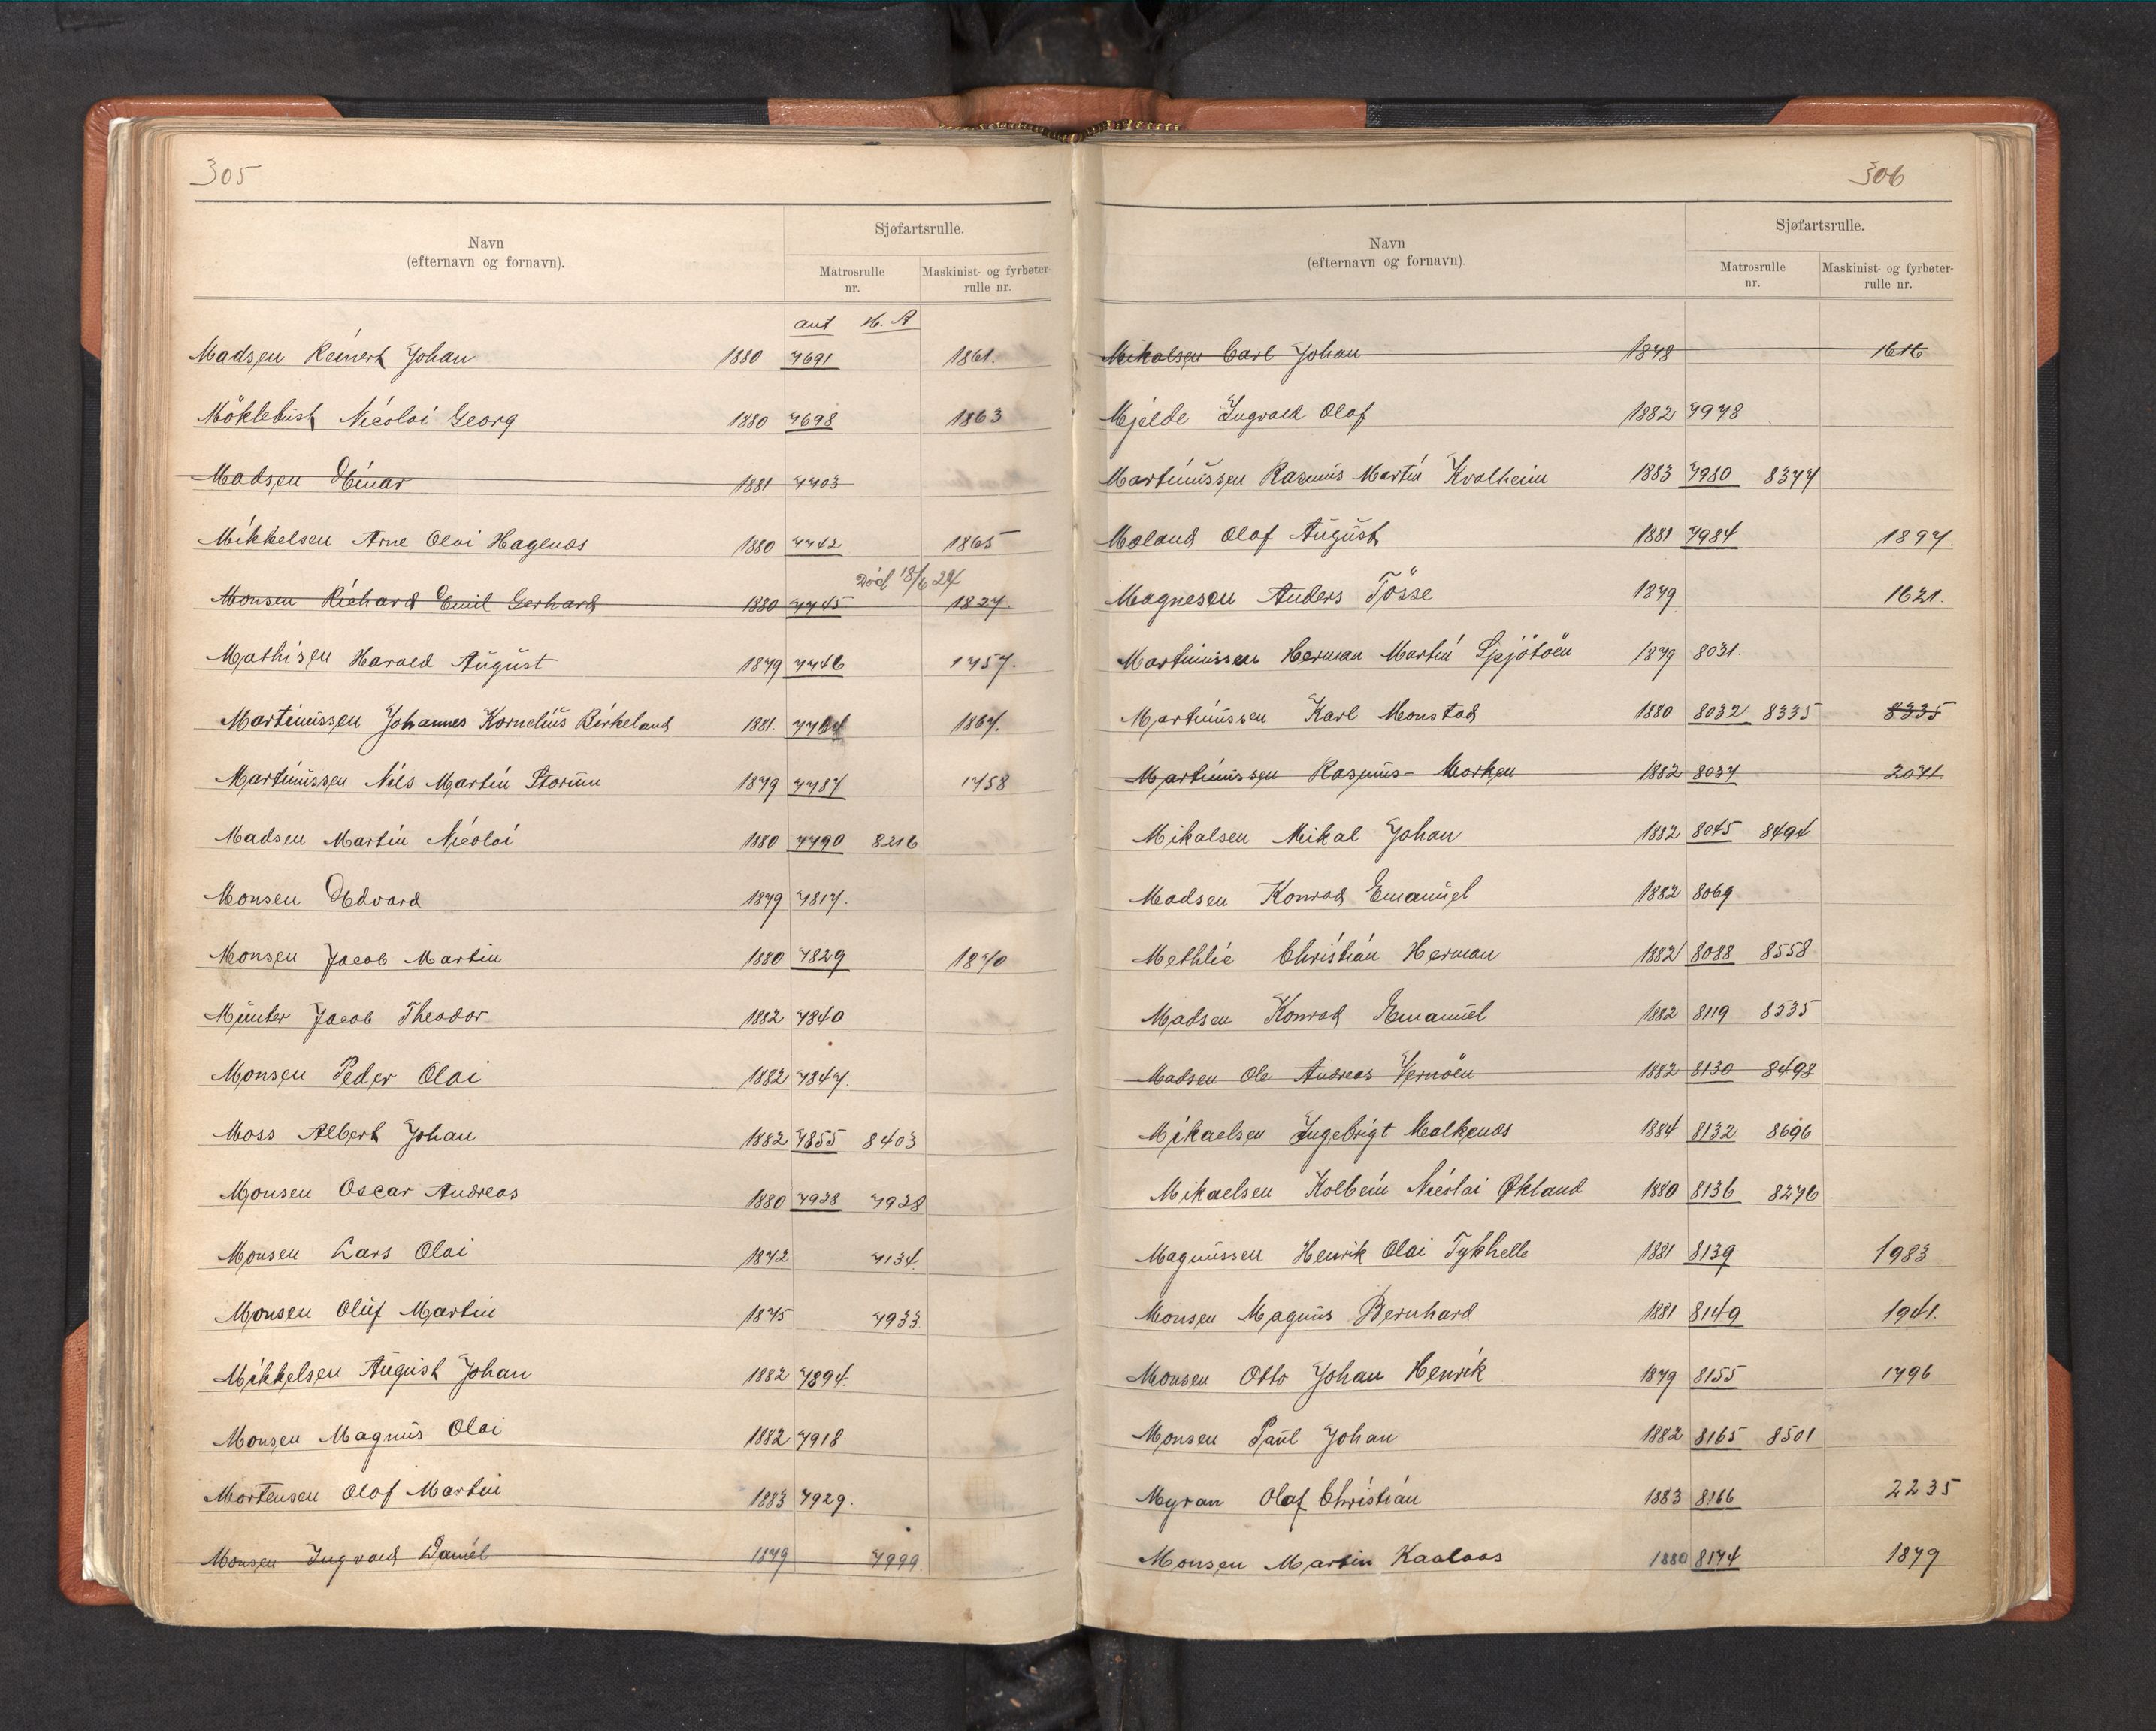 305
Navn
(efternavn og fornavn).
Sjøfartsrulle.
Matrosrulle
nr.
Maskinist- og fyrbøter-
rulle nr.
ant H. A
Madsen Reinert Johan 1880 7691 1861.
Möklebust Nicolai Georg 1880 7698 1863
Madsen Einar 1881 7703
Mikkelsen Arne Olai Hagenæs 1880 7742 1865
Död 18/6 24
Monsen Richard Emil Gerhard 1880 7745 1827.
Mathisen Harald August 1879 7746 1757.
Martinussen Johannes Kornelius Birkeland 1881. 7764 1867.
Martinussen Nils Martin Storum 1879 7787 1758
Madsen Martin Nicolai 1880 7790 8216
Monsen Edvard 1879 7817.
Monsen Jacob Martin 1880 7829 1870
Münter Jacob Theodor 1882 7840
Monsen Peder Olai 1882 7847.
Moss Albert Johan 1882 7855 8403
Monsen Oscar Andreas 1880 7928 7928
Monsen Lars Olai 1872 7134.
Monsen Oluf Martin 1875 7933.
Mikkelsen August Johan 1882 7894.
Monsen Magnus Olai 1882 7918.
Mortensen Olof Martin 1883 7929.
Monsen Ingvald Daniel 1879 7999.
306
Navn
(efternavn og fornavn).
Sjøfartsrulle.
Matrosrulle
nr.
Maskinist- og fyrbøter-
rulle nr.
Mikalsen Carl Johan 1878 1616
Mjelde Ingvald Olaf 1882 7978
Martinussen Rasmus Martin Kvalheim 1883 7980 8377
Moland Olaf August 1881 7984 1897.
Magnesen Anders Tösse 1879 1621.
Martinussen Herman Martin Spjötöen 1879 8031.
Martinussen Karl Monstad 1880 8032 8335 8335
Martinussen Rasmus Morken 1882 8037 2071.
Mikalsen Mikal Johan 1882 8045 8494
Madsen Konrad Emanuel 1882 8069
Methlie Christian Herman 1882 8088 8558
Madsen Konrad Emanuel 1882 8119 8535
Madsen Ole Andreas Vernöen 1882 8130 8498
Mikaelsen Ingebrigt Malkenæs 1884 8132 8696
Mikaelsen Kolbein Nicolai Økland 1880 8136 8276
Magnussen Henrik Olai Tykhelle 1881 8139 1983
Monsen Magnus Bernhard 1881 8149 1941.
Monsen Otto Johan Henrik 1879 8155 1796
Monsen Paul Johan 1882 8165 8501
Myran Olaf Christian 1883 8166 2235
Monsen Martin Kaalaas 1880 8174 1879